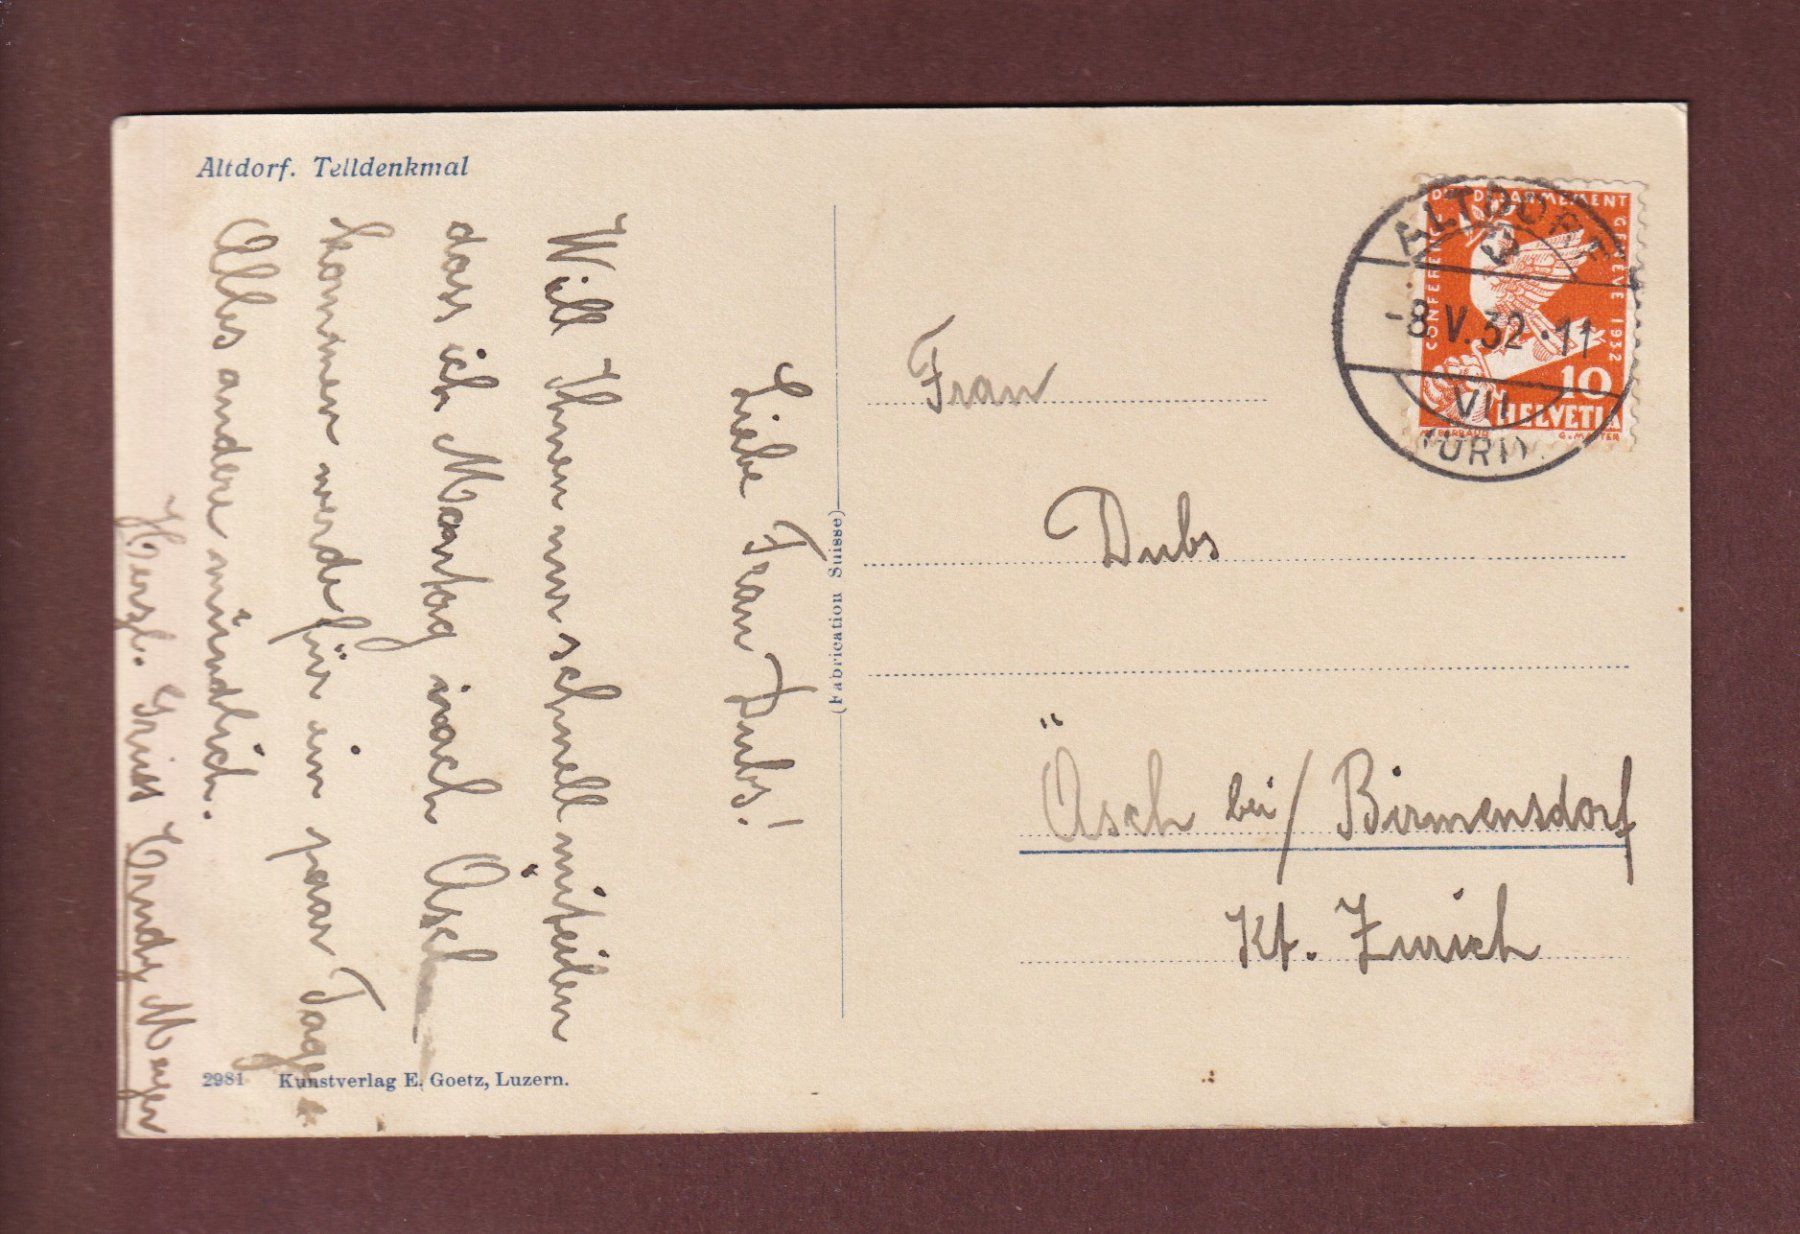 Altdorf. Telldenkmal
Liebe Frau Dubs!
Will Ihnen nur schnell miteilen
dass ich Montag nach Äsch
kommen werde für ein paar Tage.
Alles andere mündlich.
Herzl. Grüss Trudy Meyer
2981 Kunstverlag E. Goetz, Luzern.
(Fabrication Suisse)
CONFERENCE DU DESARMEMENT GENEVE 1932
10
HELVETIA
ALTDORF
-8.V.32.11
VII
(URI)
Frau
Dubs
Äsch bei/Birmensdorf
Kt. Zurich